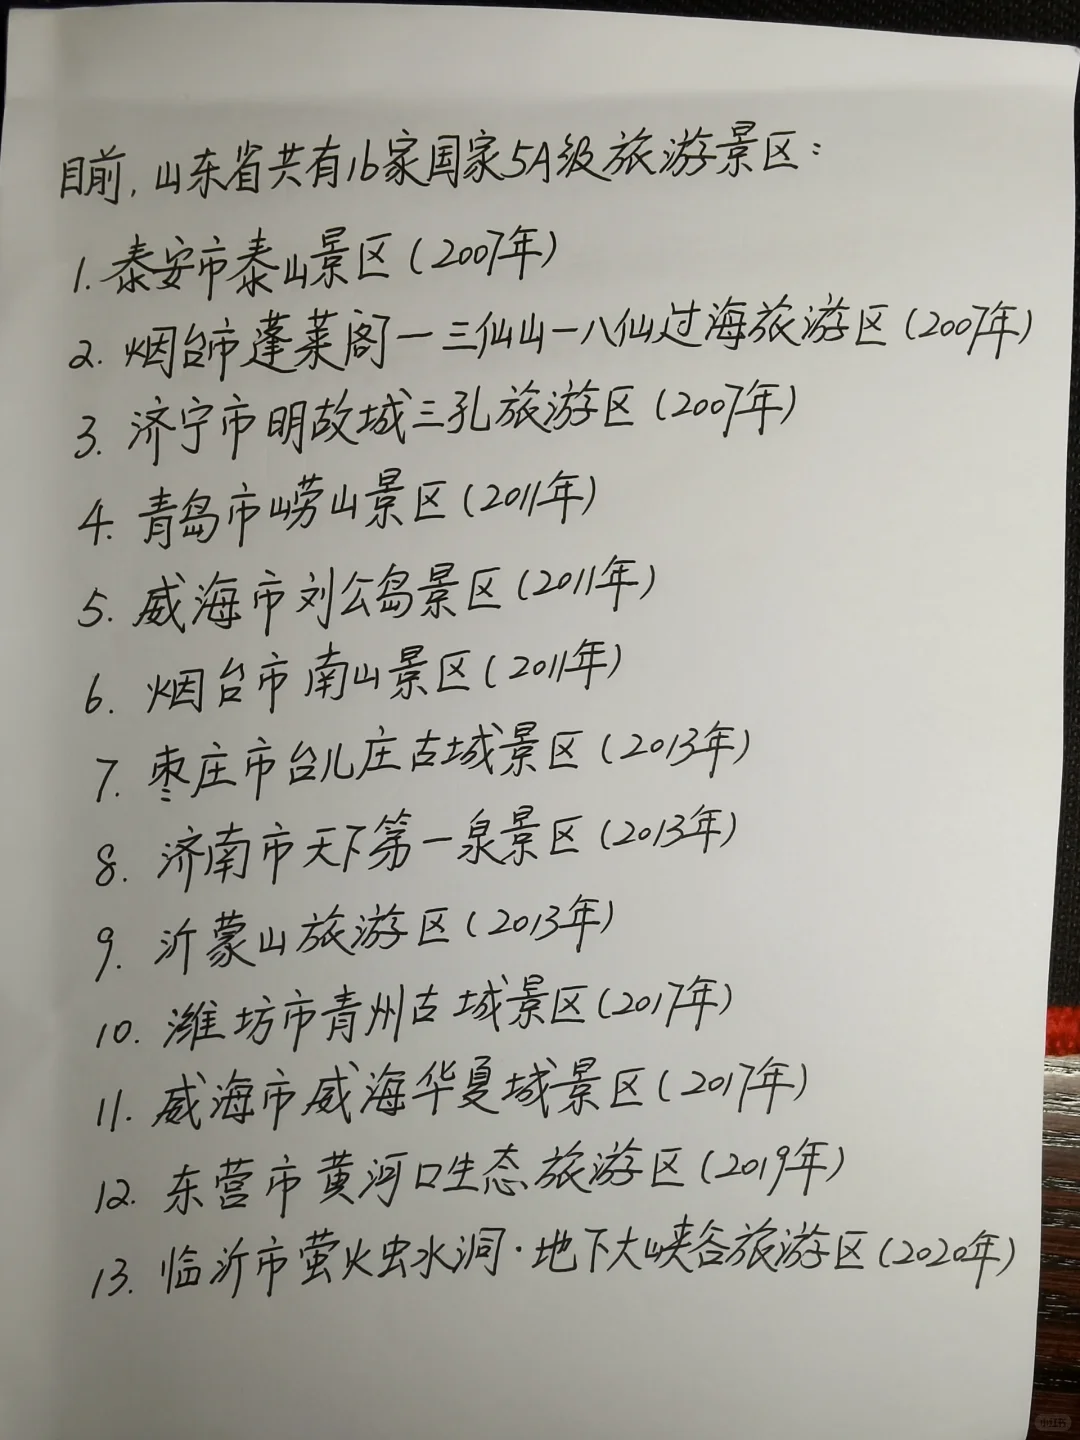 目前,山东省共有16家国家5A级旅游景区:
1.泰安市泰山景区(2007年)
2.烟台市蓬莱阁一三仙山一八仙过海旅游区(2007年)
3.济宁市明故城三孔旅游区(2007年)
4.青岛市崂山景区(2011年)
5.威海市刘公岛景区(2011年)
6.烟台市南山景区(2011年)
7.枣庄市台儿庄古城景区(2013年)
8.济南市天下第一泉景区(2013年)
9.沂蒙山旅游区(2013年)
10.潍坊市青州古城景区(2017年)
11.威海市威海华夏城景区(2017年)
12.东营市黄河口生态旅游区(2019年)
13.临沂市萤火虫水洞·地下大峡谷旅游区(2020年)